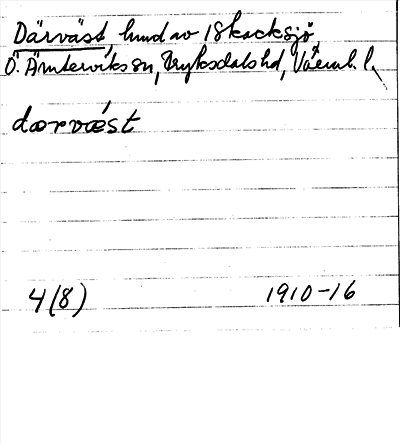 Därväst, hmd av 1 Skacksjö
Ö. Ämterviks sn, Fryksdals hd, Värml. l.
dærvæst
4(8) 1910-16